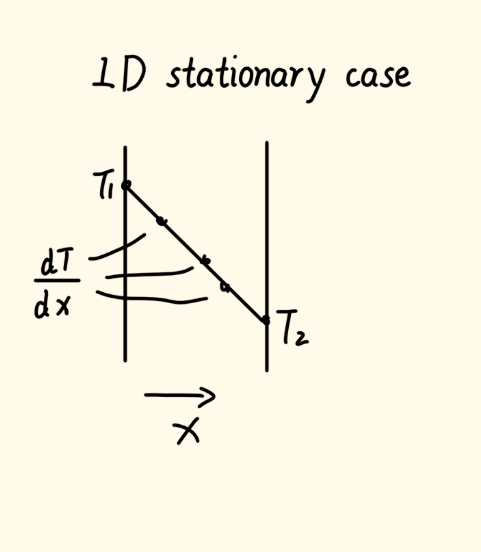 1D stationary case
T₁
dT
dx
T₂
x